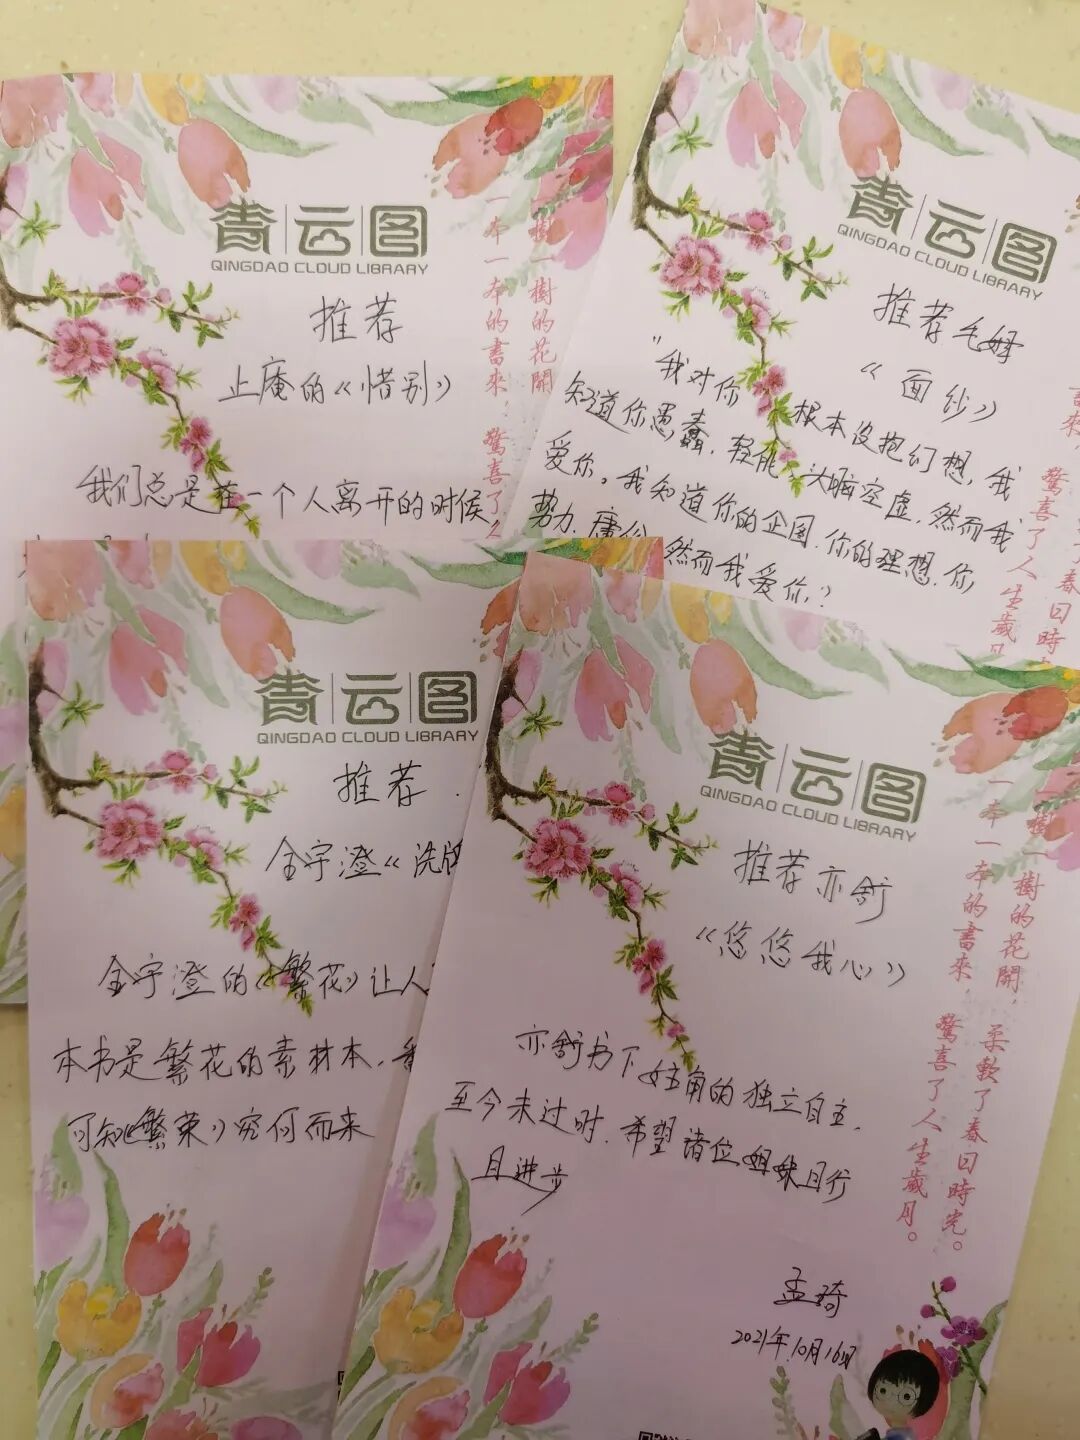 青云图
QINGDAO CLOUD LIBRARY
推荐
止庵的《惜别》
我们总是在一个人离开的时候,
一樹一樹的花開
一本一本的書來,驚喜了人
青云图
QINGDAO CLOUD LIBRARY
推荐毛姆
《面纱》
"我对你根本没抱幻想,我
知道你愚蠢.轻佻.头脑空虚.然而我
爱你。我知道你的企图.你的理想.你
势力.庸俗.然而我爱你,?
春日時
書來,驚喜了人生歲月
青云图
QINGDAO CLOUD LIBRARY
推荐.
金宇澄《洗牌
金宇澄的《繁花》让人
本书是繁花的素材本.看
可知《繁荣》究何而来
青云图
QINGDAO CLOUD LIBRARY
推荐亦舒
《悠悠我心》
亦舒书下女主角的独立自主.
至今未过时.希望诸位姐妹日行
日进步
孟琦
2021年.10月16日
一樹一樹的花開,柔軟了春日時光。
一本一本的書來,驚喜了人生歲月。